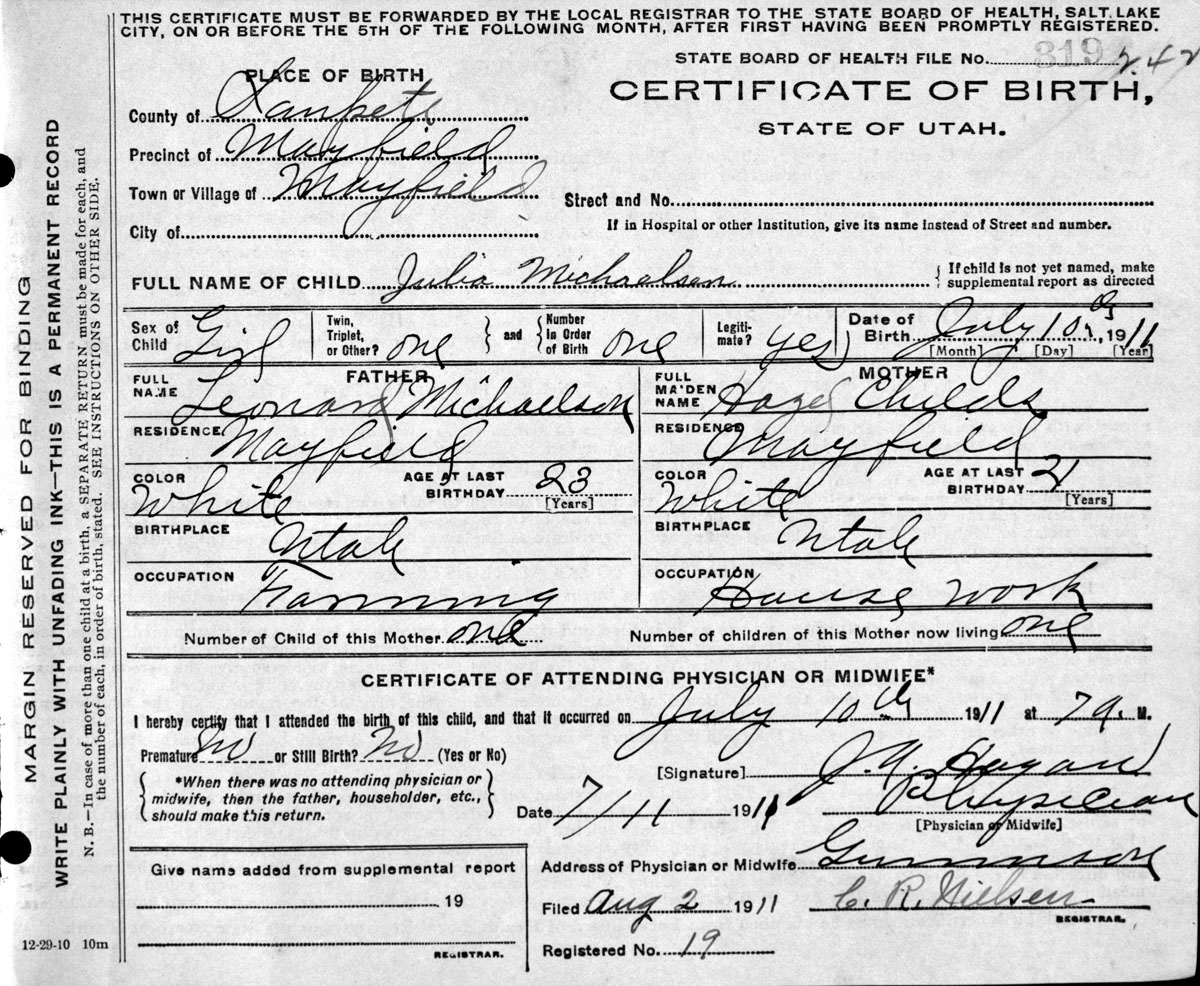 THIS CERTIFICATE MUST BE FORWARDED BY THE LOCAL REGISTRAR TO THE STATE BOARD OF HEALTH, SALT LAKE
CITY, ON OR BEFORE THE 5TH OF THE FOLLOWING MONTH, AFTER FIRST HAVING BEEN PROMPTLY REGISTERED.
STATE BOARD OF HEALTH FILE No. 319 242
CERTIFICATE OF BIRTH,
STATE OF UTAH.
PLACE OF BIRTH
County of Sanpete
Precinct of Mayfield
Town or Village of Mayfield
City of
Street and No.
If in Hospital or other Institution, give its name instead of Street and number.
FULL NAME OF CHILD Julia Michaelsen
{ If child is not yet named, make
supplemental report as directed
Sex of Child Girl
Twin, Triplet, or Other? one } and { Number In Order of Birth one
Legitimate? yes
Date of Birth July 10th, 1911
[Month] [Day] [Year]
FATHER
FULL NAME Leonard Michaelson
RESIDENCE Mayfield
COLOR White AGE AT LAST BIRTHDAY 23
[Years]
BIRTHPLACE Utah
OCCUPATION Farming
MOTHER
FULL MAIDEN NAME Hazel Childs
RESIDENCE Mayfield
COLOR White AGE AT LAST BIRTHDAY 21
[Years]
BIRTHPLACE Utah
OCCUPATION House work
Number of Child of this Mother one Number of children of this Mother now living one
CERTIFICATE OF ATTENDING PHYSICIAN OR MIDWIFE*
I hereby certify that I attended the birth of this child, and that it occurred on July 10th 1911 at 7 a. M.
Premature No or Still Birth? No (Yes or No)
{ *When there was no attending physician or
midwife, then the father, householder, etc.,
should make this return. }
[Signature] Hagan
Physician
[Physician or Midwife]
Date 7/11 1911
Address of Physician or Midwife Gunnison
Filed Aug 2 1911 C. R. Nielsen
REGISTRAR.
Registered No. 19
Give name added from supplemental report
19
REGISTRAR.
12-29-10 10m
MARGIN RESERVED FOR BINDING
WRITE PLAINLY WITH UNFADING INK—THIS IS A PERMANENT RECORD
N. B.—In case of more than one child at a birth, a SEPARATE RETURN must be made for each, and
the number of each, in order of birth, stated. SEE INSTRUCTIONS ON OTHER SIDE.